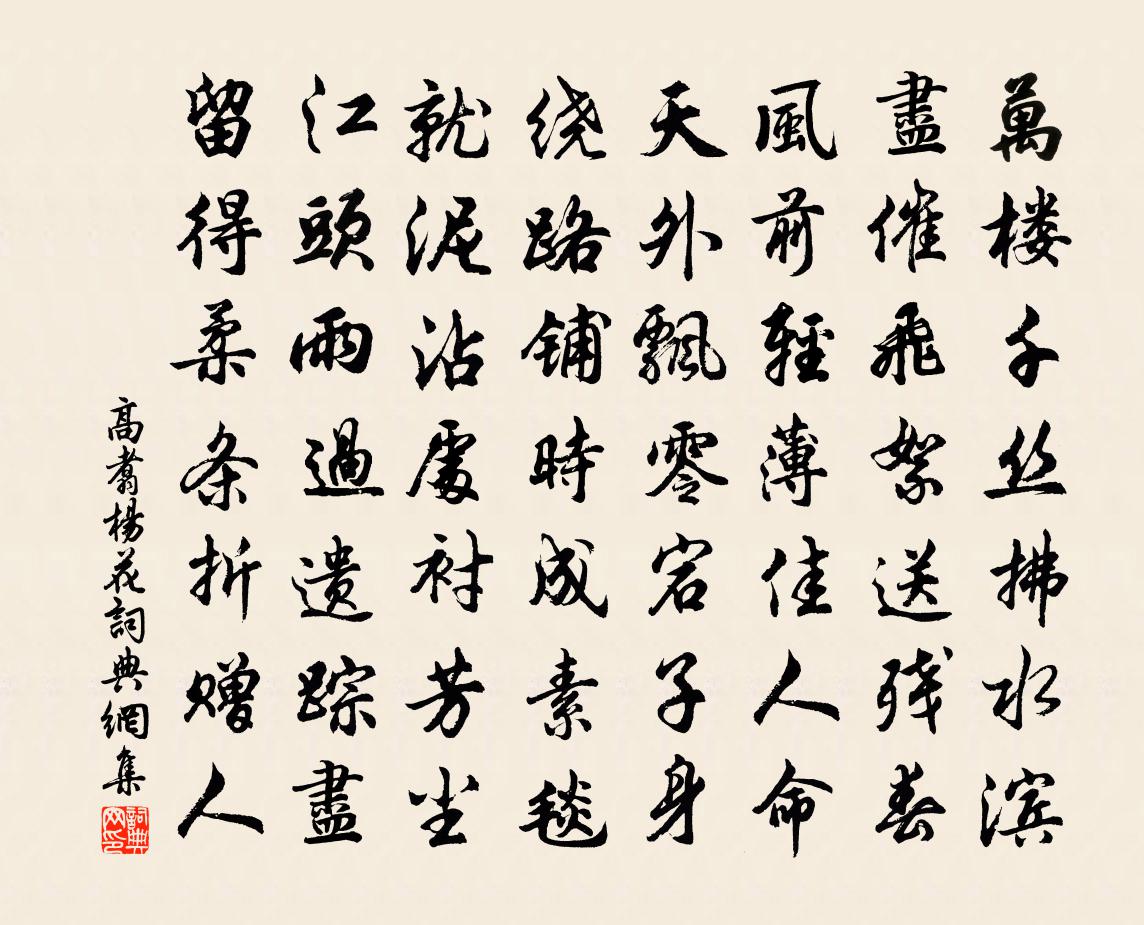 萬楼千丝拂水滨
盡催飛絮送残春
風前輕薄佳人命
天外飄零宕子身
绕路铺時成素毯
就泥沾處衬芳尘
江頭雨過遗踪盡
留得柔条折赠人
高翥楊花詞典網集
詞典网印